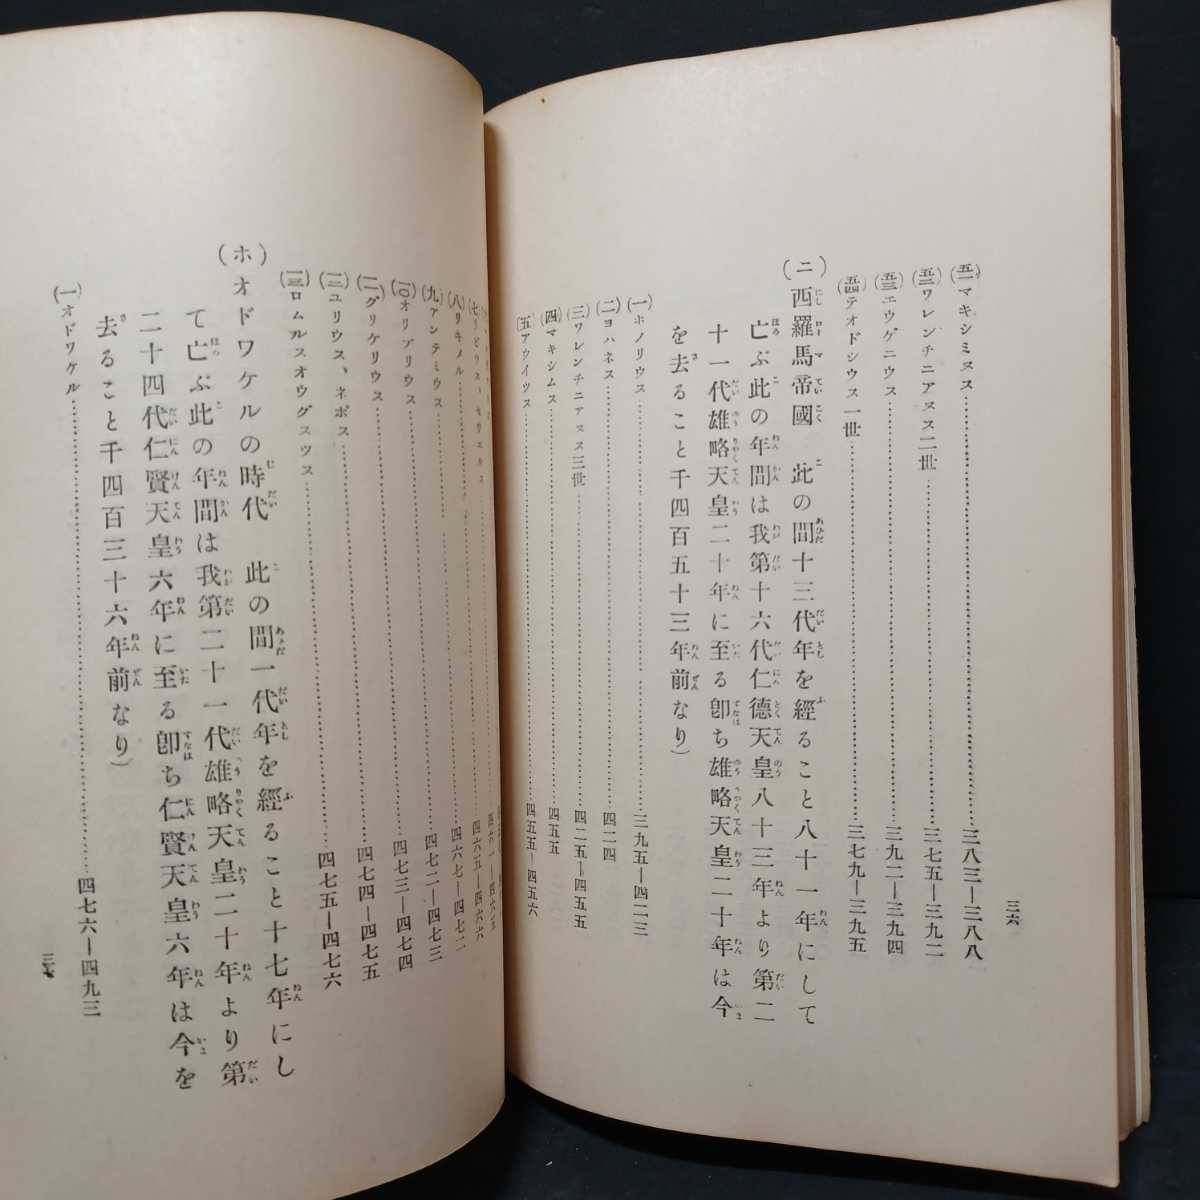 三六
(五一)マキシミヌス………三八三—三八八
(五二)ワレンチニアヌス二世………三七五—三九二
(五三)エウゲニウス………三九二—三九四
(五四)テオドシウス一世………三七九—三九五
(ニ)西羅馬帝國 此の間十三代年を經ること八十一年にして
亡ぶ此の年間は我第十六代仁德天皇八十三年より第二
十一代雄略天皇二十年に至る卽ち雄略天皇二十年は今
を去ること千四百五十三年前なり)
(一)ホノリウス………三九五—四二三
(二)ヨハネス………四二四
(三)ワレンチニアヌス三世………四二五—四五五
(四)マキシムス………四五五
(五)アウイツス………四五五—四五六
(七)リビウス、セリエルス………四六一—四六五
(八)リキメル………四六五—四六六
(九)アンテミウス………四六七—四七二
(一〇)オリブリウス………四七二—四七三
(一一)グリケリウス………四七三—四七四
(一二)ユリウス、ネポス………四七四—四七五
(一三)ロムルスオウグスツス………四七五—四七六
(ホ)オドワケルの時代 此の間一代年を經ること十七年にし
て亡ぶ此の年間は我第二十一代雄略天皇二十年より第
二十四代仁賢天皇六年に至る卽ち仁賢天皇六年は今を
去ること千四百三十六年前なり)
(一)オドワケル………四七六—四九三
三七